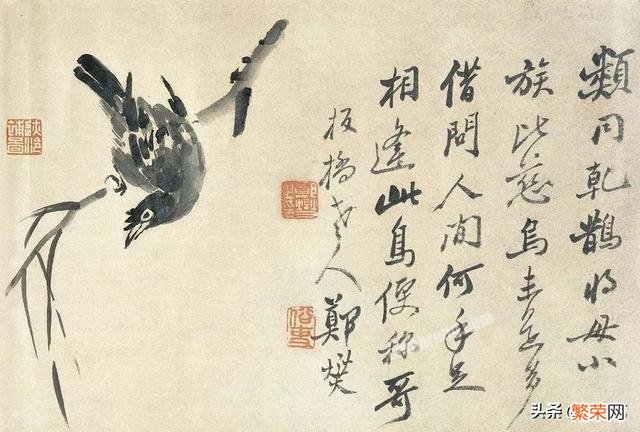 類同乾鵲将毋小
族比慈烏未足多
借問人間何手足
相逢此鳥便称哥
板橋老人鄭燮
头条
繁荣网